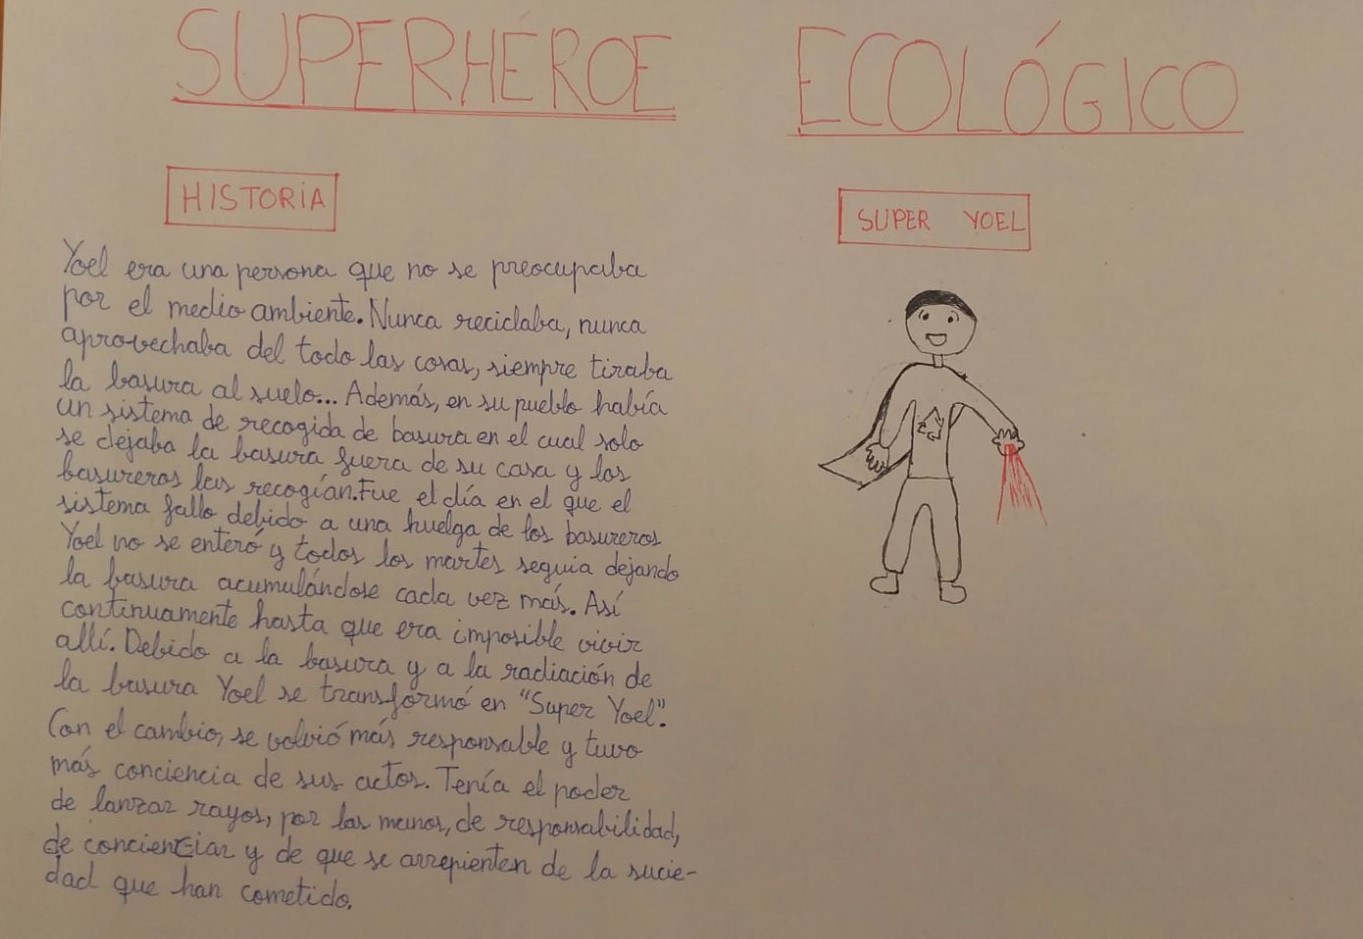 SUPERHÉROE ECOLÓGICO
HISTORIA
Yoel era una persona que no se preocupaba
por el medio ambiente. Nunca reciclaba, nunca
aprovechaba del todo las cosas, siempre tiraba
la basura al suelo... Además, en su pueblo había
un sistema de recogida de basura en el cual solo
se dejaba la basura fuera de su casa y los
basureros las recogían. Fue el día en el que el
sistema fallo debido a una huelga de los basureros
Yoel no se enteró y todos los martes seguia dejando
la basura acumulándose cada vez más. Así
continuamente hasta que era imposible vivir
allí. Debido a la basura y a la radiación de
la basura Yoel se transformó en "Super Yoel".
Con el cambio, se volvió más responsable y tuvo
más conciencia de sus actos. Tenía el poder
de lanzar rayos, por las manos, de responsabilidad,
de concienciar y de que se arrepienten de la sucie-
dad que han cometido.
SUPER YOEL